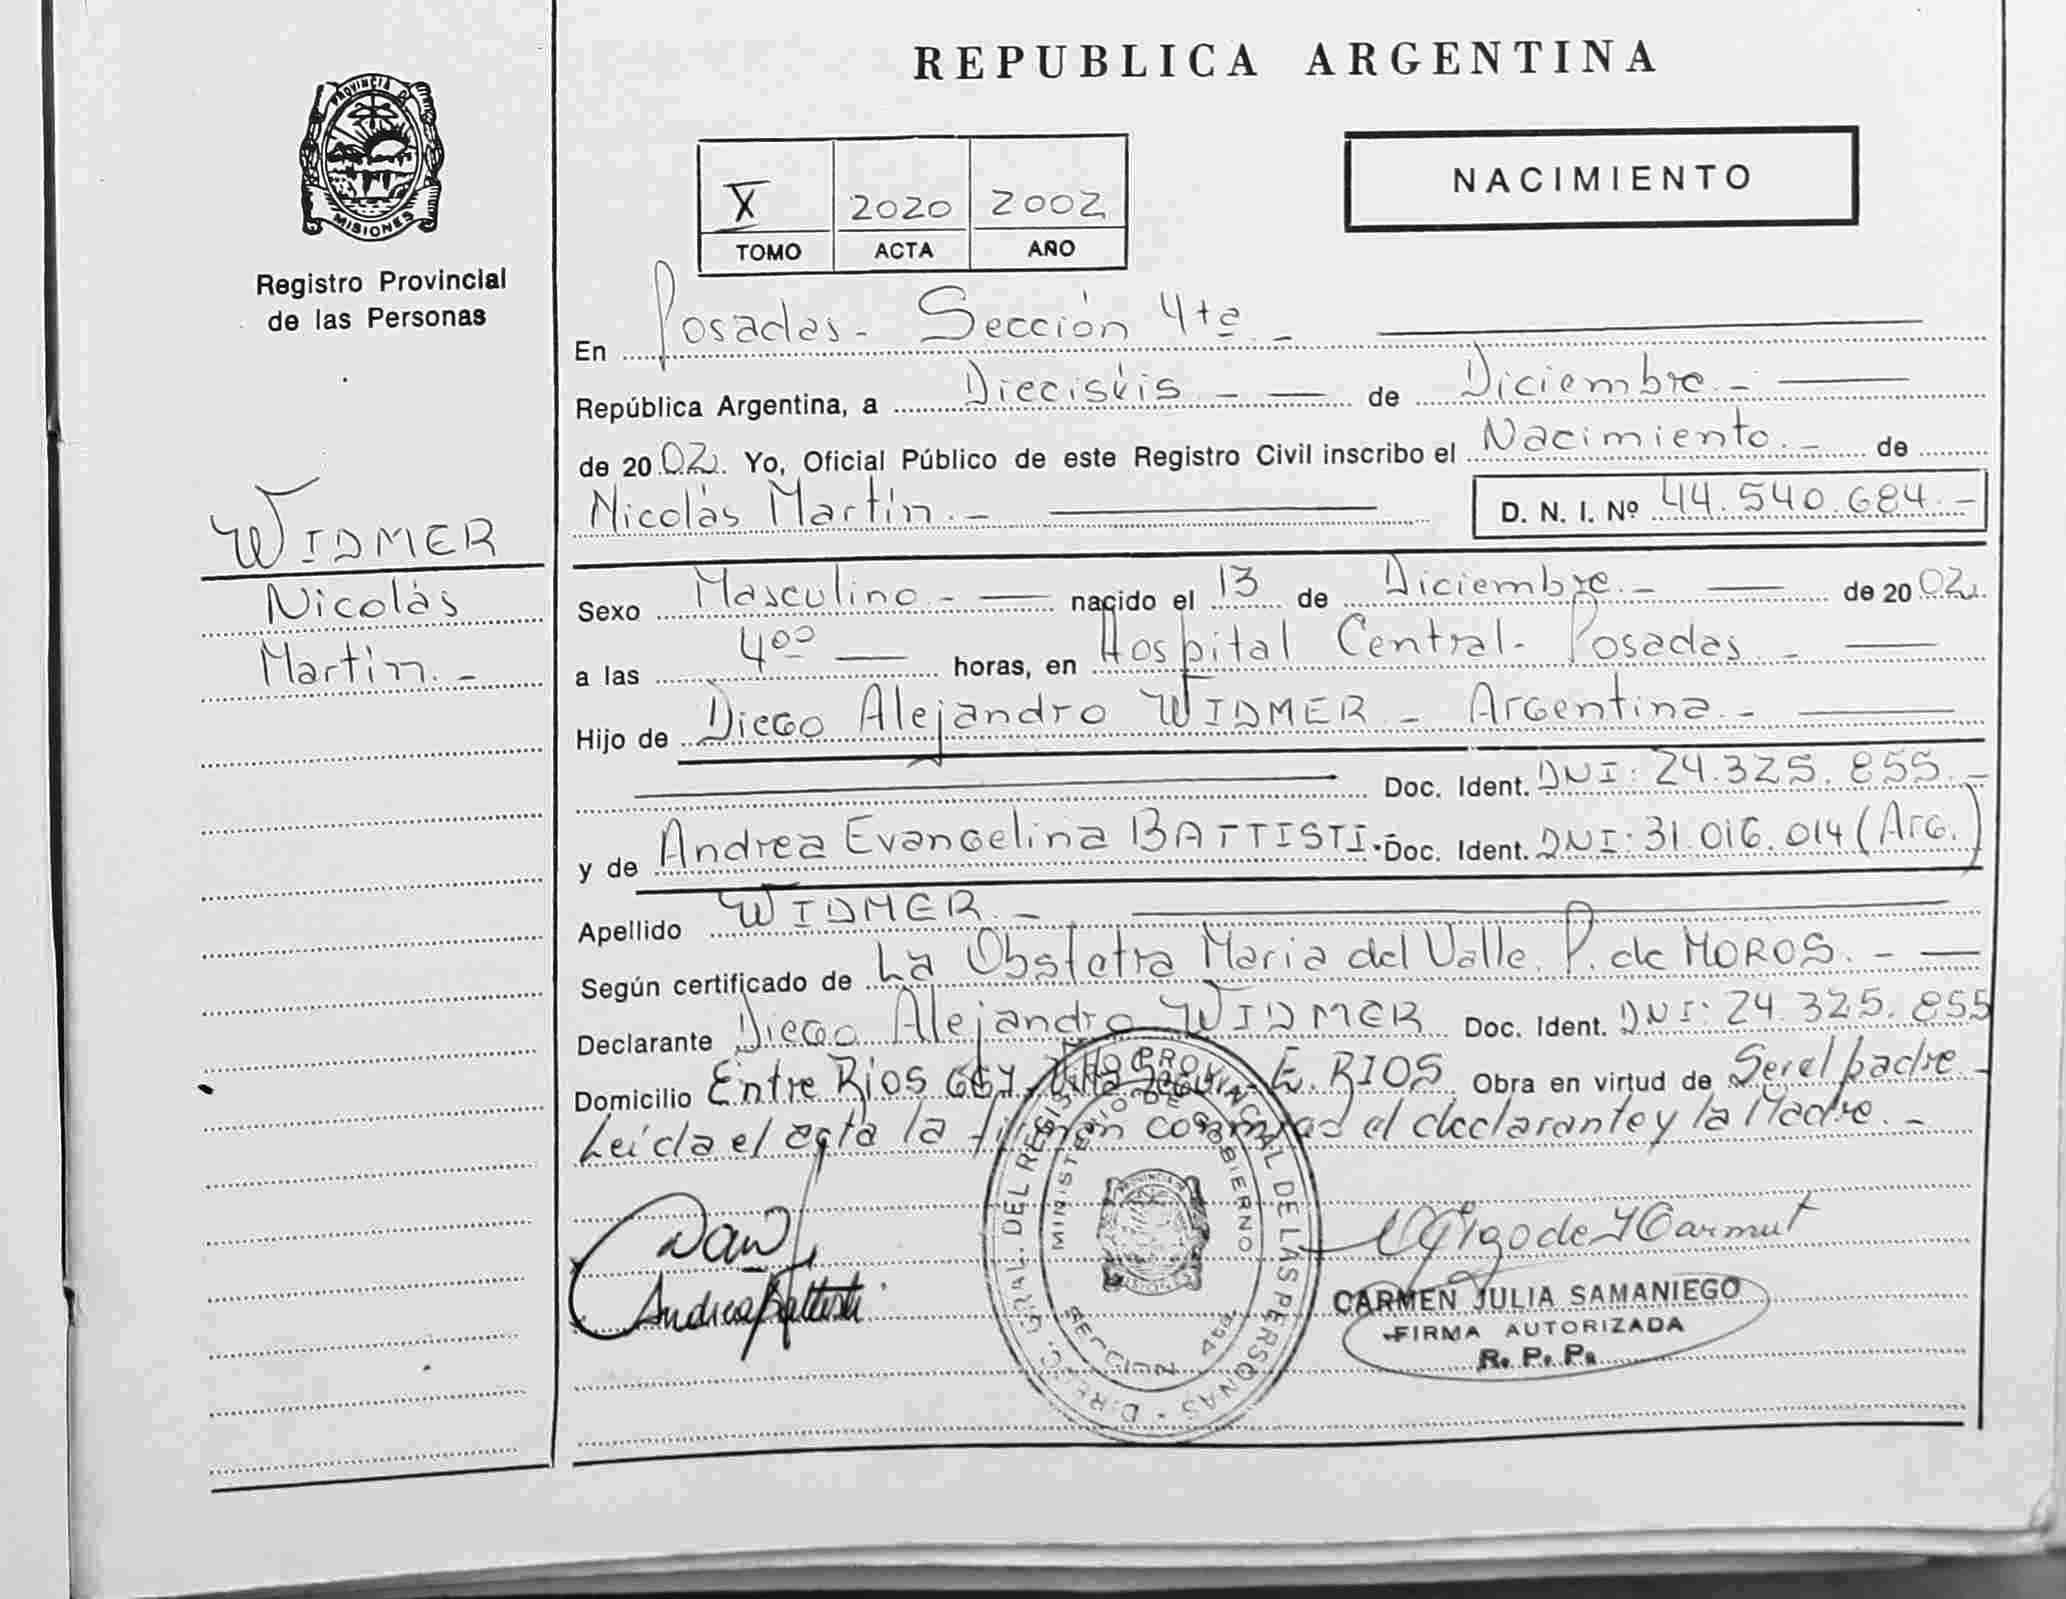 REPUBLICA ARGENTINA
PROVINCIA D
MISIONES
Registro Provincial
de las Personas
X 2020 2002
TOMO ACTA AÑO
NACIMIENTO
En Posadas - Sección 4ta -
República Argentina, a Dieciséis - de Diciembre -
de 2002. Yo, Oficial Público de este Registro Civil inscribo el Nacimiento. - de
Nicolás Martín. - D. N. I. Nº 44.540.684. -
WIDMER
Nicolás
Martín. -
Sexo Masculino - nacido el 13 de Diciembre. - de 2002.
a las 4⁰⁰ horas, en Hospital Central - Posadas. -
Hijo de Diego Alejandro WIDMER - Argentina. -
Doc. Ident. DNI: 24.325.855. -
y de Andrea Evangelina BATTISTI. - Doc. Ident. DNI: 31.016.014 (Arg.)
Apellido WIDMER. -
Según certificado de La Obstetra Maria del Valle P. de MOROS. -
Declarante Diego Alejandro WIDMER Doc. Ident. DNI: 24.325.855
Domicilio Entre Rios E. RIOS Obra en virtud de Ser el padre -
Leída el acta la firman el declarante y la Madre. -
Andrea Battisti
CARMEN JULIA SAMANIEGO
FIRMA AUTORIZADA
R. P. P.
GRAL. DEL REGISTRO PROVINCIAL DE LAS PERSONAS
MINISTERIO DE GOBIERNO
MISIONES